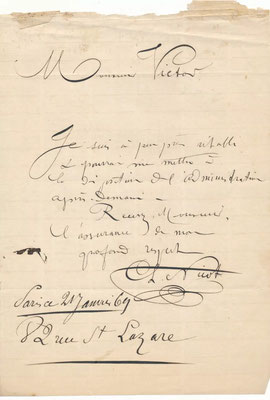 Monsieur Victor
Je suis à peu près rétabli
& pourrai me mettre à
la disposition de l'administration
après-demain.
Recevez Monsieur,
l'assurance de mon
profond respect
Paris ce 21 Janvier 69
82 rue St Lazare